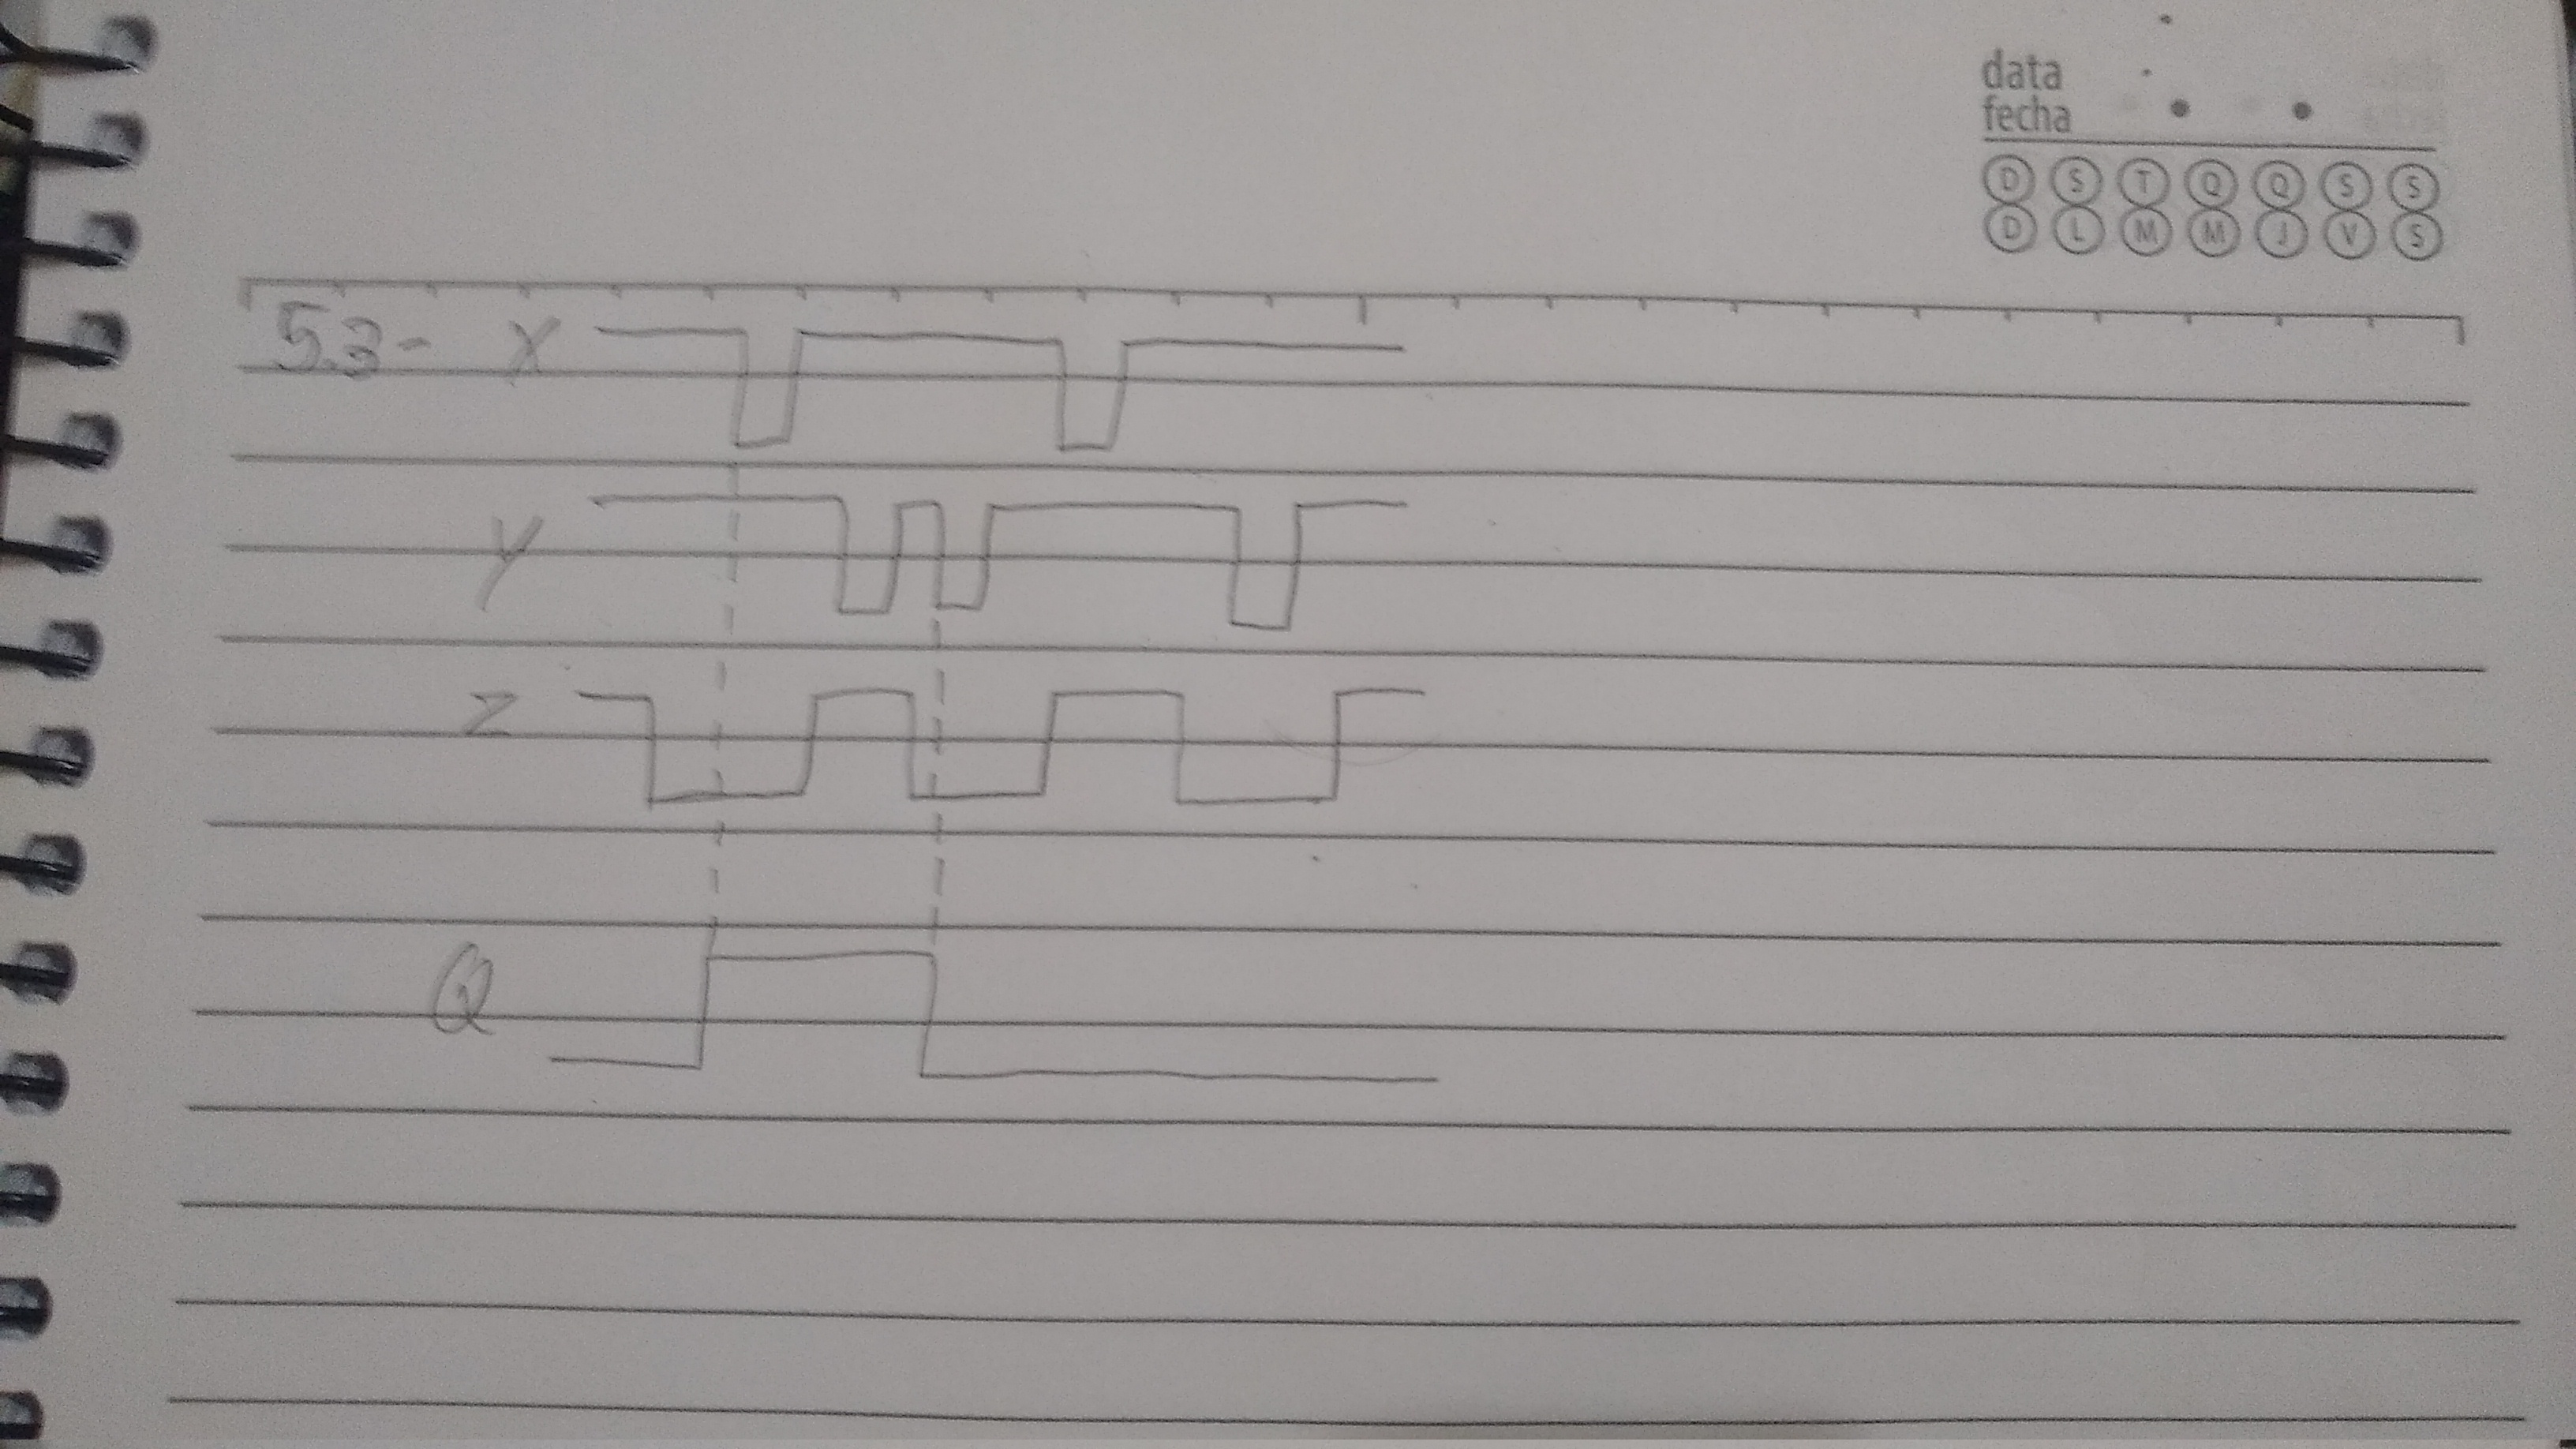 data
fecha
D S T Q Q S S
D L M M J V S
5.3- X
Y
Z
Q